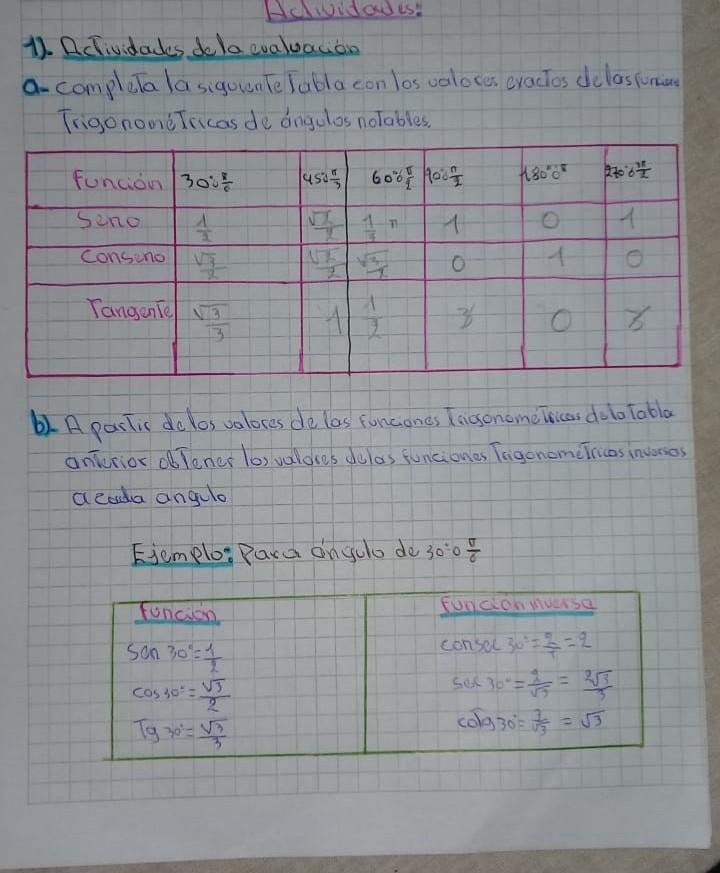 Actividades:
1). Actividades de la evaluación
a- completa la siguiente Tabla con los valores exactos de las
Trigonométricas de ángulos notables.
Función 30° ó π/6 45 ó 60° ó 90 ó π/2 180° ó π 270° ó
Seno 1/2 1 0 1
Conseno √3/2 0 1 0
Tangente √3/3 1 1/2 0
b). A partir de los valores de las funciones Trigonométricas de la Tabla
anterior obtener los valores de las funciones Trigonométricas inversas
a cada angulo
Ejemplo: Para ángulo de 30° o π/6
función función inversa
Sen 30° = 1/2 consec 30° = 2/1 = 2
cos 30° = √3/2 sec 30° = 2/√3 = 2√3/3
Tg 30° = √3/3 coTg 30° = 3/√3 = √3